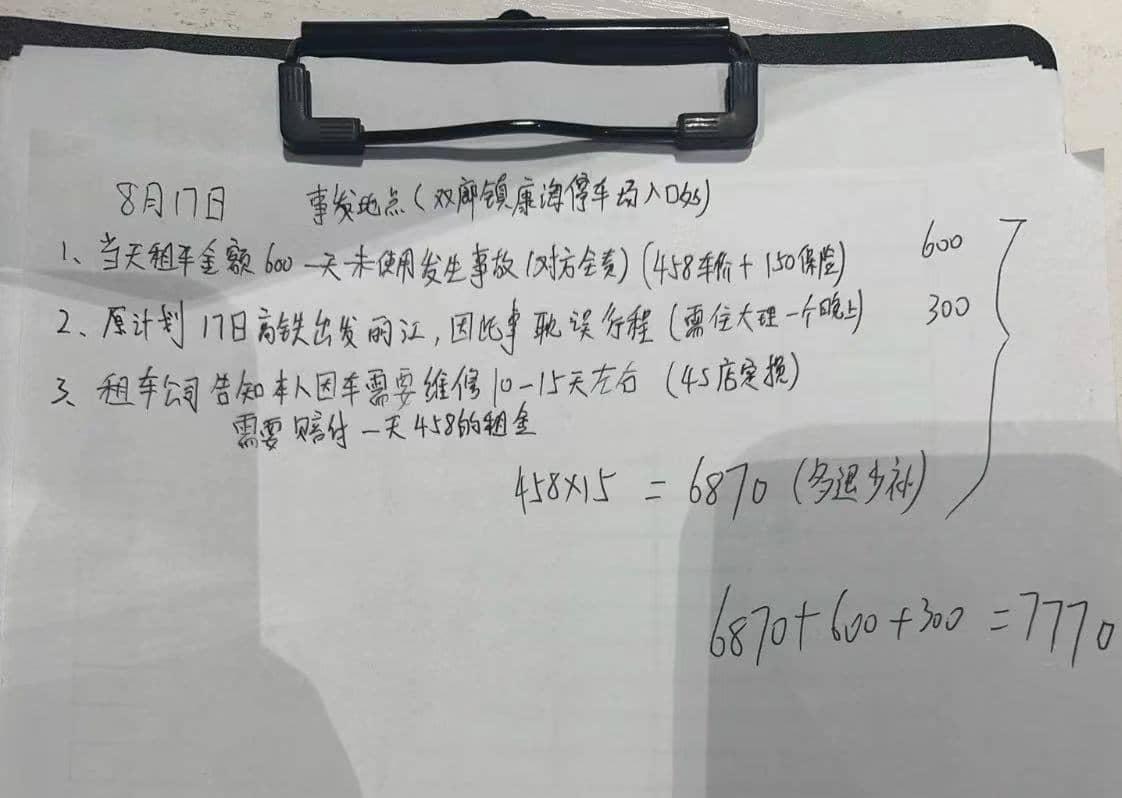 8月17日 事发地点(双廊镇康海停车场入口处)
1、当天租车金额600 一天未使用发生事故(对方全责)(458车价+150保险) 600
2、原计划17日高铁出发丽江,因此事耽误行程(需住大理一个晚上) 300
3、租车公司告知本人因车需要维修10-15天左右(4S店定损)
需要赔付一天458的租金
458×15 = 6870(多退少补)
6870+600+300=7770